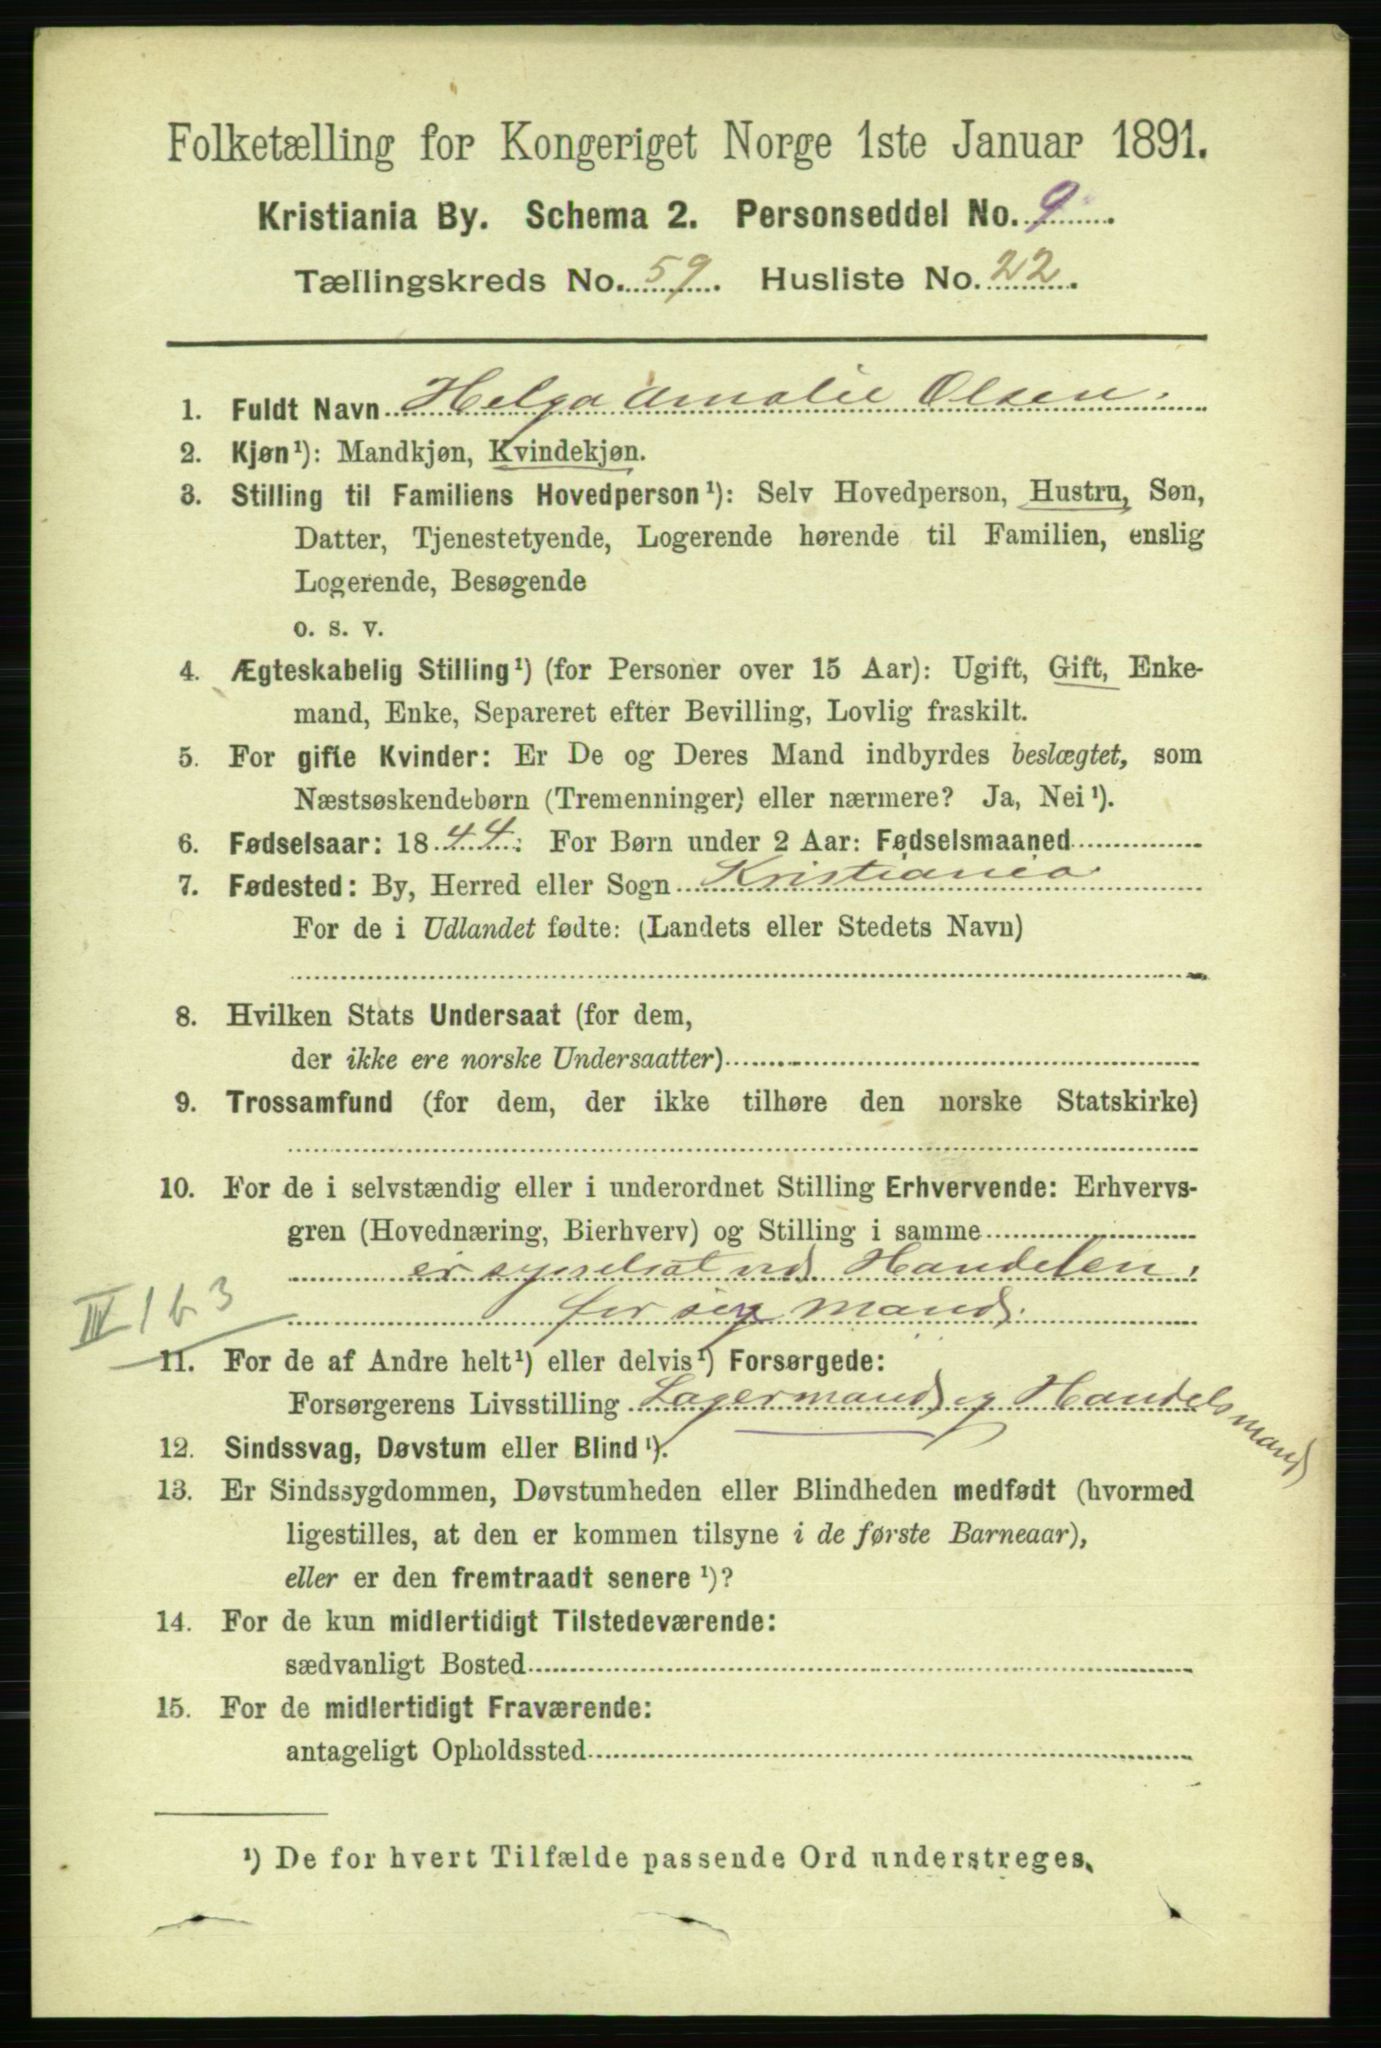 Folketælling for Kongeriget Norge 1ste Januar 1891.
Kristiania By. Schema 2. Personseddel No. 9.
Tællingskreds No. 59. Husliste No. 22.
1. Fuldt Navn Helga Amalie Olsen.
2. Kjøn¹): Mandkjøn, Kvindekjøn.
3. Stilling til Familiens Hovedperson¹): Selv Hovedperson, Hustru, Søn,
Datter, Tjenestetyende, Logerende hørende til Familien, enslig
Logerende, Besøgende
o. s. v.
4. Ægteskabelig Stilling¹) (for Personer over 15 Aar): Ugift, Gift, Enke-
mand, Enke, Separeret efter Bevilling, Lovlig fraskilt.
5. For gifte Kvinder: Er De og Deres Mand indbyrdes beslægtet, som
Næstsøskendebørn (Tremenninger) eller nærmere? Ja, Nei¹).
6. Fødselsaar: 1844: For Børn under 2 Aar: Fødselsmaaned
7. Fødested: By, Herred eller Sogn Kristiania
For de i Udlandet fødte: (Landets eller Stedets Navn)
8. Hvilken Stats Undersaat (for dem,
der ikke ere norske Undersaatter)
9. Trossamfund (for dem, der ikke tilhøre den norske Statskirke)
10. For de i selvstændig eller i underordnet Stilling Erhvervende: Erhvervs-
gren (Hovednæring, Bierhverv) og Stilling i samme
er sysselsat ved Handelen,
for sig mand.
IV 1 b 3
11. For de af Andre helt¹) eller delvis¹) Forsørgede:
Forsørgerens Livsstilling Lagermand og Handelsmand
12. Sindssvag, Døvstum eller Blind¹).
13. Er Sindssygdommen, Døvstumheden eller Blindheden medfødt (hvormed
ligestilles, at den er kommen tilsyne i de første Barneaar),
eller er den fremtraadt senere¹)?
14. For de kun midlertidigt Tilstedeværende:
sædvanligt Bosted
15. For de midlertidigt Fraværende:
antageligt Opholdssted
¹) De for hvert Tilfælde passende Ord understreges.